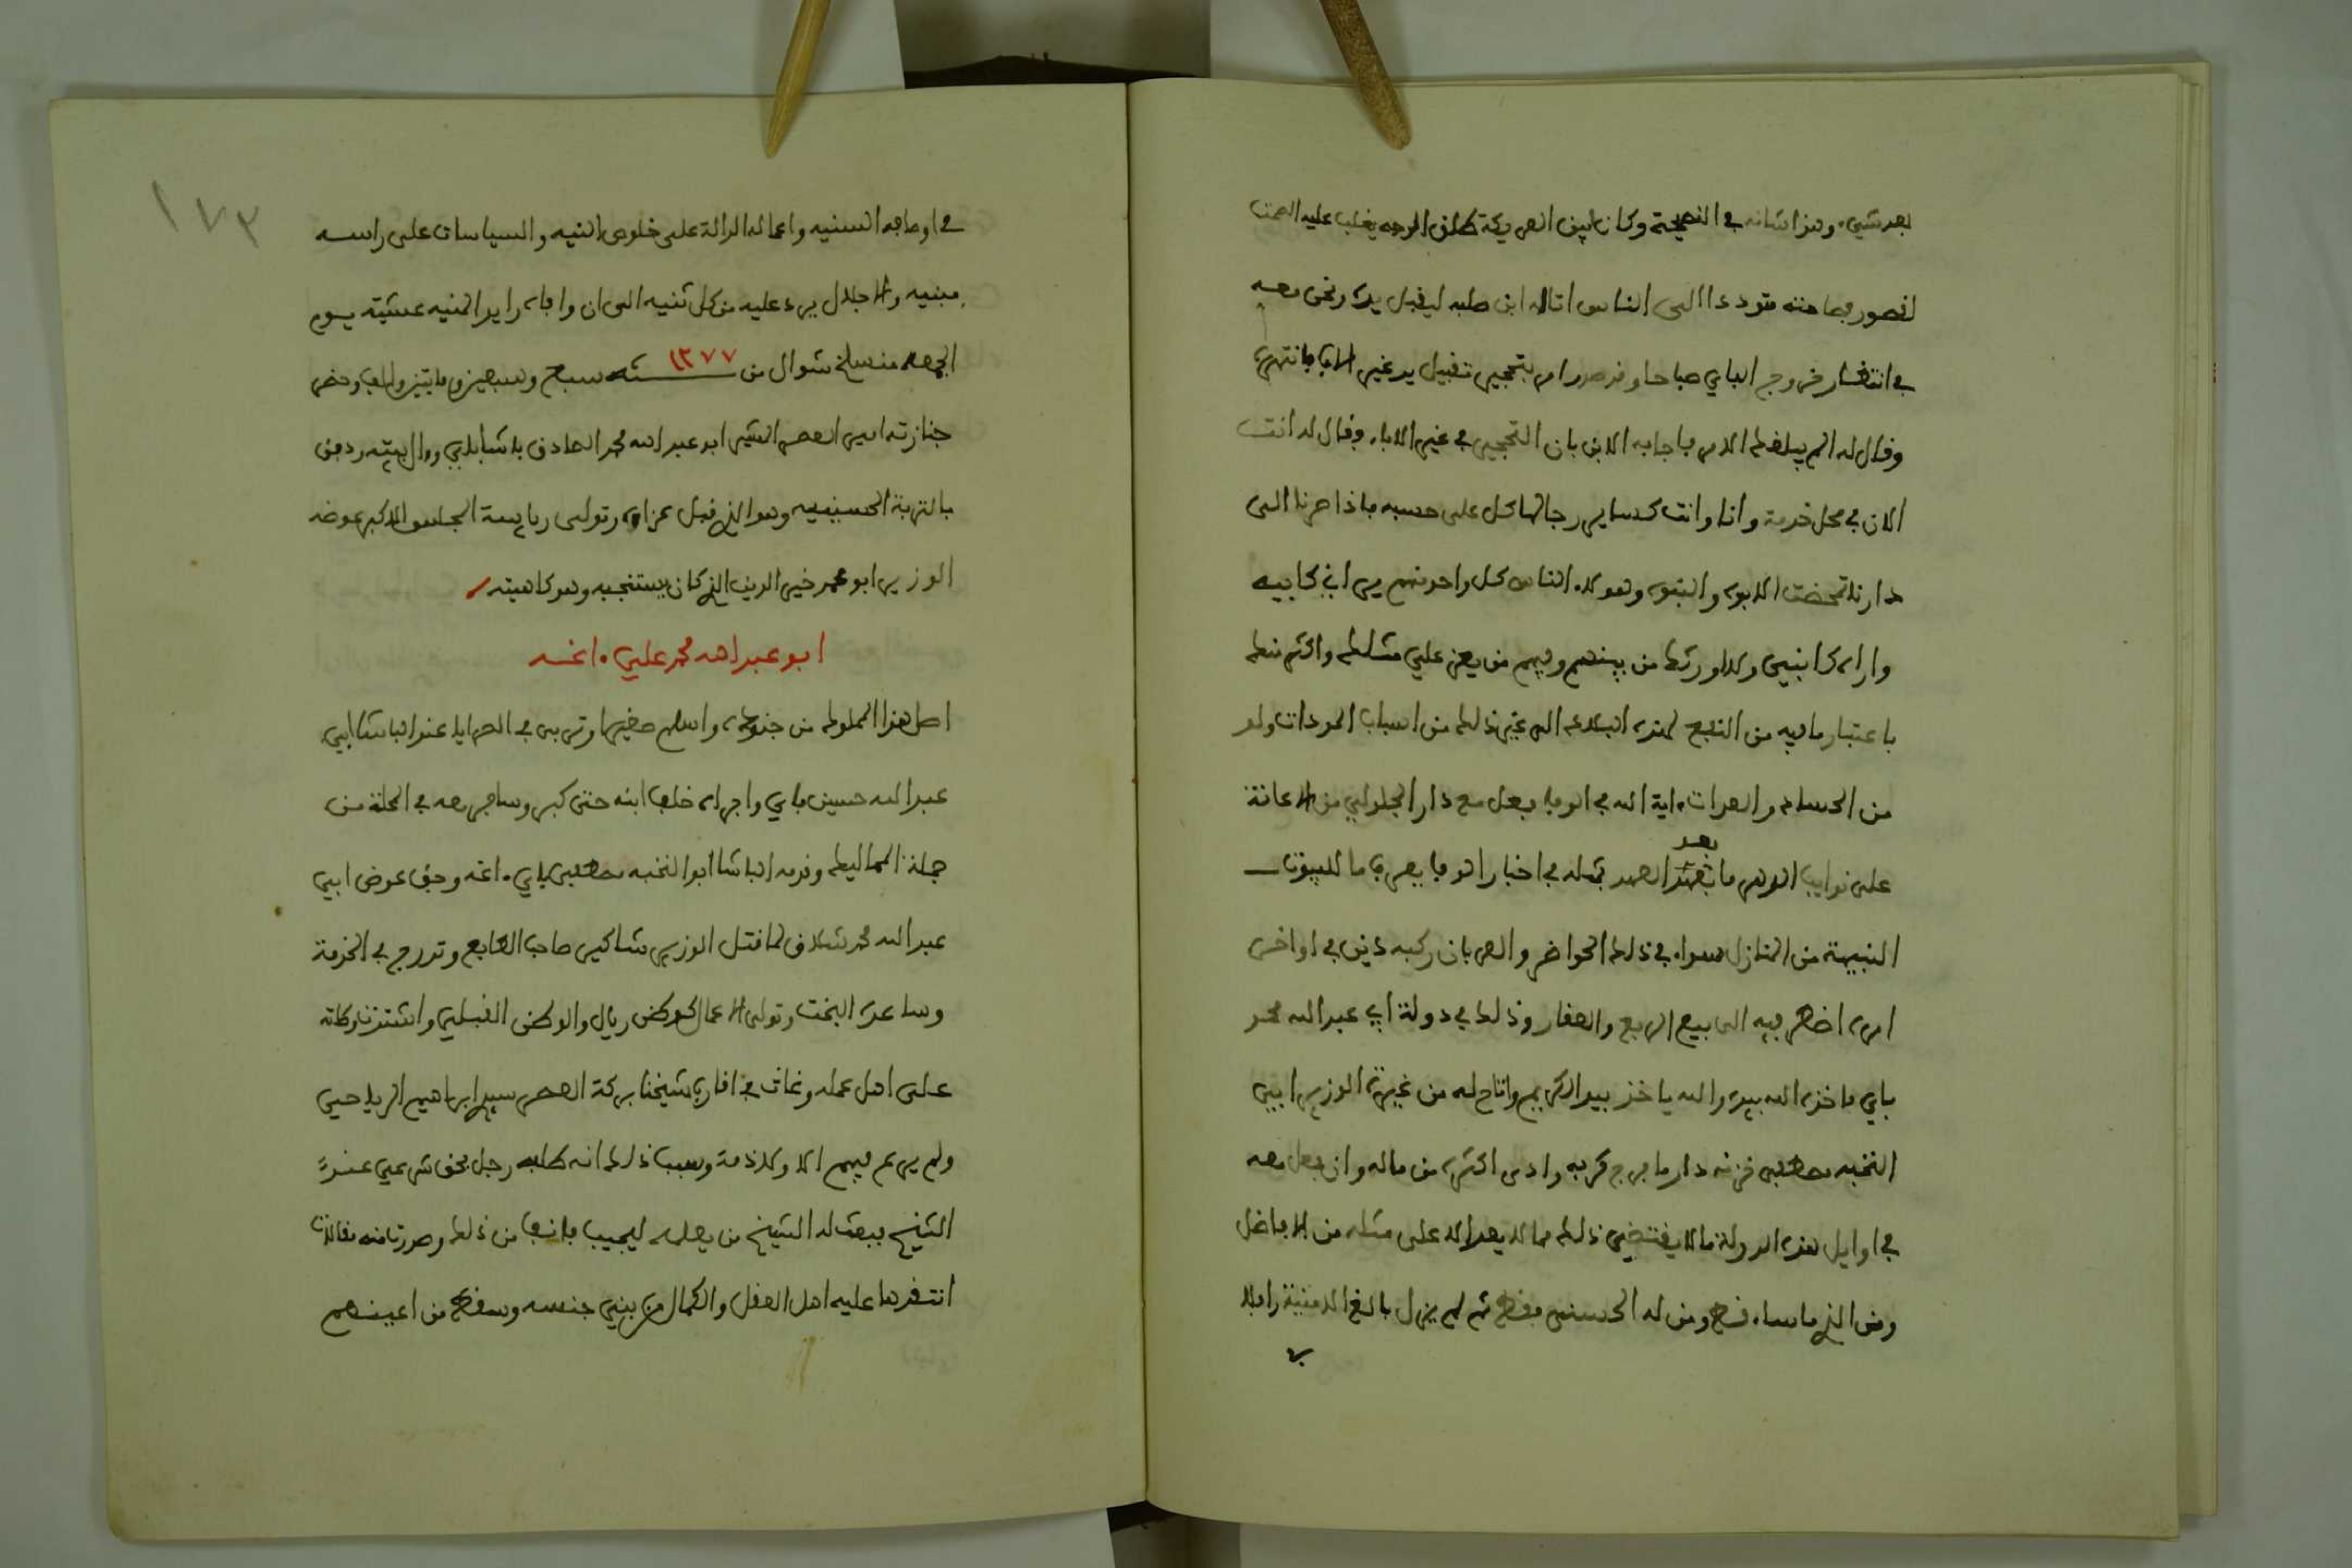 بعد شيء. وهذا شانه في النصيحة وكان لين العريكة طلق الوجه يغلب عليه الصمت
لقصور فصاحته متوددا الى الناس اتاه ابن طلبه ليقبل يده ونحن معه
في انتظار خروج الباي صباحا وقد صدر امر بتحجير تقبيل يد غير الاباء فانتهره
وقال له الم يبلغك الامر فاجابه الابن بان التحجير في غير الاباء فقال له انت
الان في محل خدمة وانا وانت كساير رجالها كل على حسبه فاذا صرنا الى
دارنا تمحضت الابوه والبنوه وهولاء الناس كل واحد منهم يراني كابيه
واراه كابني ولا اورثك من بينهم وفيهم من يعز علي مثلك واكثر منك
باعتبار ما فيه من النفع لهذه البلاد الى غير ذلك من اسباب المودات وله
من الحسنات والصدقات اية الله في الوفا فعل مع دار الجلولي من الاعانة
على نوايب الدهر ما بعد العهد بمثله في اخبار الوفا يعرف ما للبيوتات
بعد
النبيهة من المنازل سواء في ذلك الحواضر والعربان ركبه دين في اواخر
امره اضطر فيه الى بيع الربع والعقار وذلك في دولة ابي عبد الله محمد
باي فاخذ الله بيده والله ياخذ بيد الكريم واتاح له من غيرة الوزير ابي
النخبه مصطفى خزنه دار ما فرج كربه وادى اكثره من ماله وان فعل معه
في اوايل هذه الدولة ما لا يقتضي ذلك مما لا يعد الا على مثله من الافاضل
ومن الذي ما ساء قط ومن له الحسنى فقط ثم لم يزل بالغ الامنية رافلا
في
١٧٣
في اوصافه السنيه واعماله الدالة على خلوص النيه والسياسات على راسه
مبنيه والاجلال يرد عليه من كل ثنيه الى ان وافاه رايد المنيه عشية يوم
الجمعه منسلخ شوال من سنه ١٢٧٧ سبع وسبعين ومايتين والف وحضر
جنازته امير العصر المشير ابو عبد الله محمد الصادق باشا باي وءال بيته ودفن
بالتربة الحسينيه وهو الذي قبل عزاه وتولى رياسة المجلس الاكبر عوضه
الوزير ابو محمد خير الدين الذي كان يستنجبه وهو كاهيته
ابو عبد الله محمد علي ءاغه
اصل هذا المملوك من جنوه واسلم صغيرا وتربى في السرايا عند الباشا ابي
عبد الله حسين باي واجراه خلف ابنه حتى كبر وسافر معه في المحلة من
جملة المماليك وقدمه الباشا ابو النخبه مصطفى باي ءاغه وجق عوض ابي
عبد الله محمد شولاق لما قتل الوزير شاكير صاحب الطابع وتدرج في الخدمة
وساعده البخت وتولى الاعمال كوطن رياح والوطن القبلي واشتدت وطاته
على اهل عمله وعاث في اقارب شيخنا بركة العصر سيدي ابراهيم الرياحي
ولم يرع فيهم الا ولا ذمة وسبب ذلك انه طلبه رجل بحق شرعي عند
الشيخ فبعث له الشيخ من يعلمه ليجيب فانف من ذلك وصدرت منه مقالات
انتقدها عليه اهل العقل والكمال من بني جنسه وسقط من اعينهم